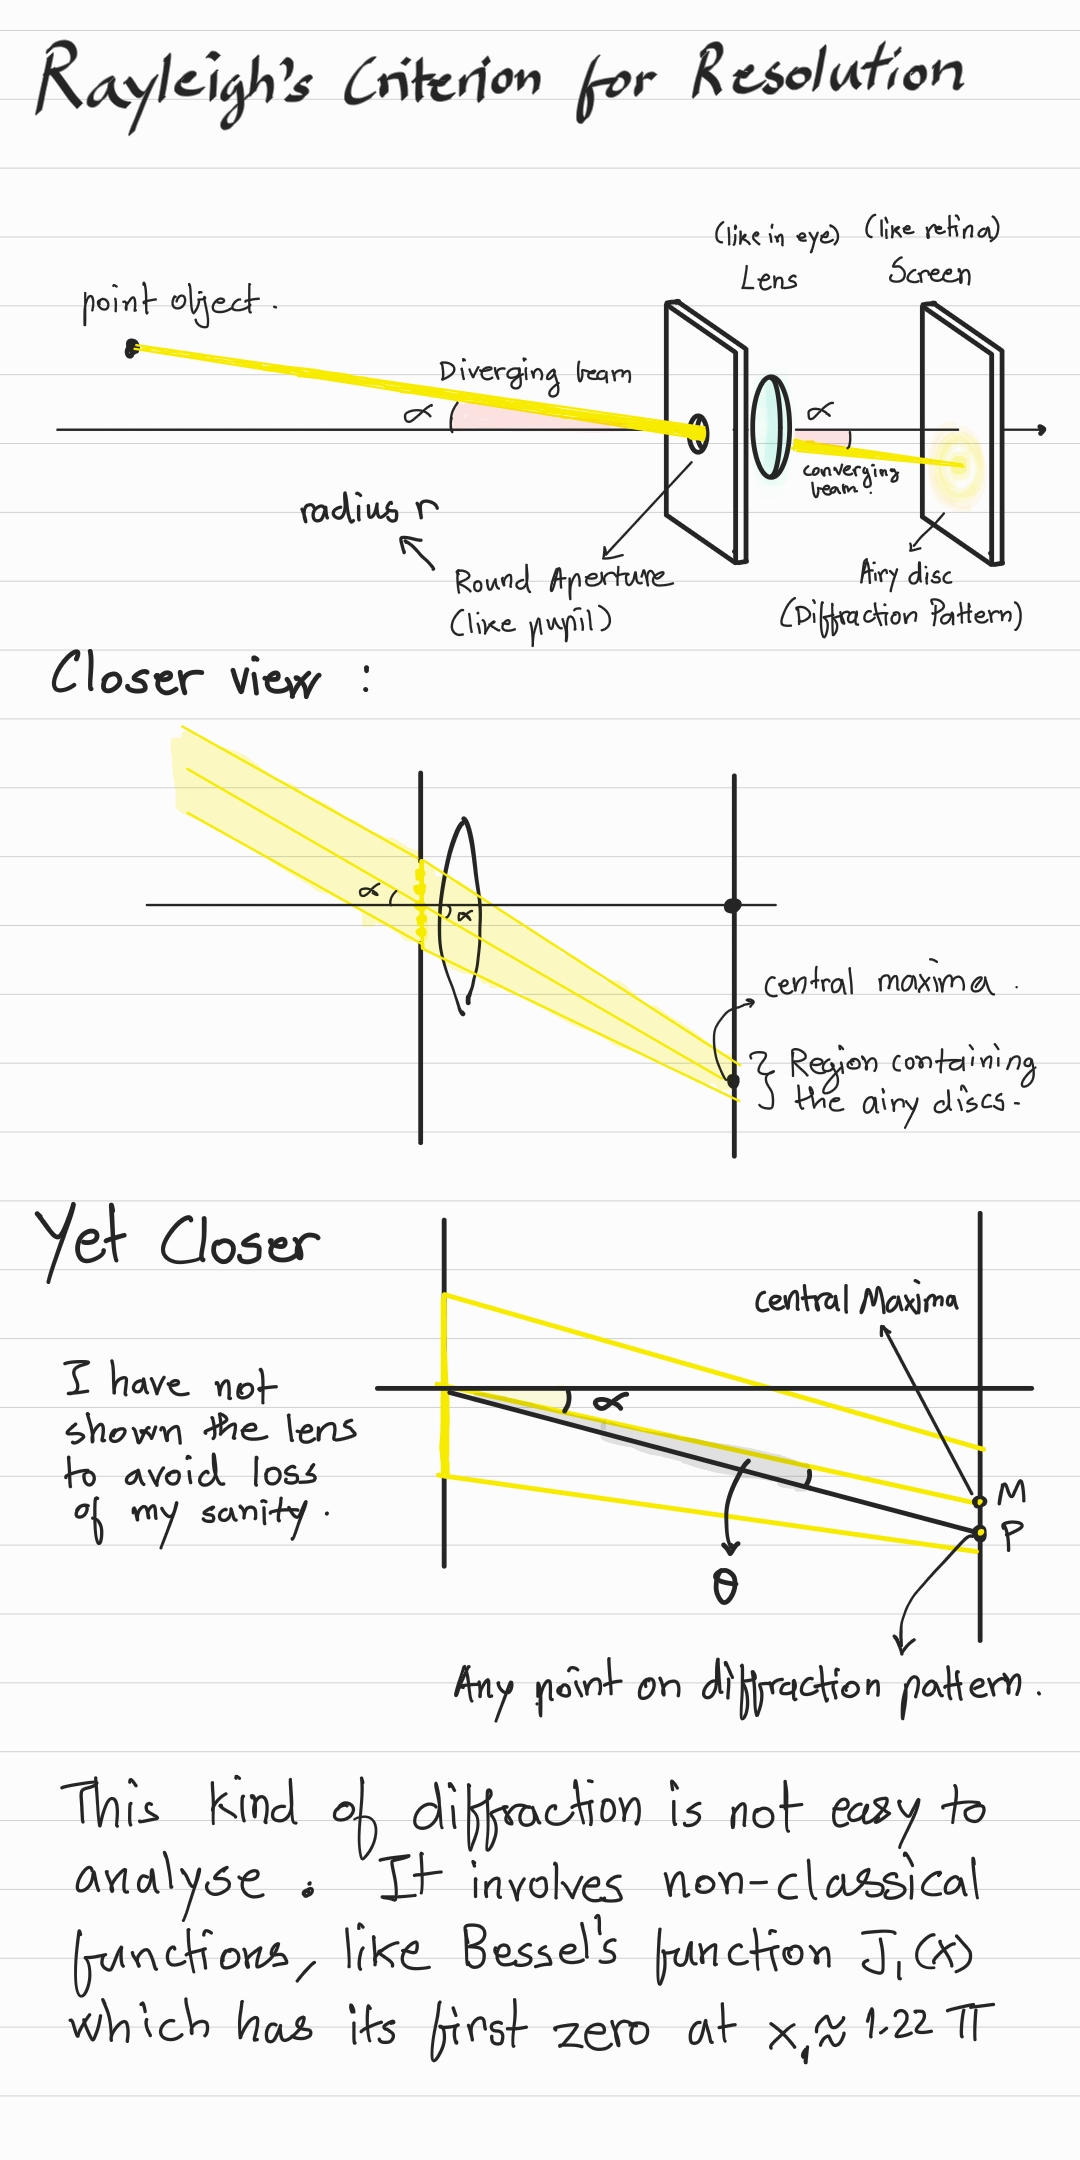 Rayleigh's Criterion for Resolution
(like in eye) (like retina)
Lens Screen
point object.
Diverging beam
α
α
converging
beam.
radius r
Round Aperture
(like pupil)
Airy disc
(Diffraction Pattern)
Closer view :
α
α
central maxima.
Region containing
the airy discs.
Yet Closer
central Maxima
I have not
shown the lens
to avoid loss
of my sanity.
α
M
P
θ
Any point on diffraction pattern.
This kind of diffraction is not easy to
analyse. It involves non-classical
functions, like Bessel's function J₁(x)
which has its first zero at x₁≈ 1.22 π